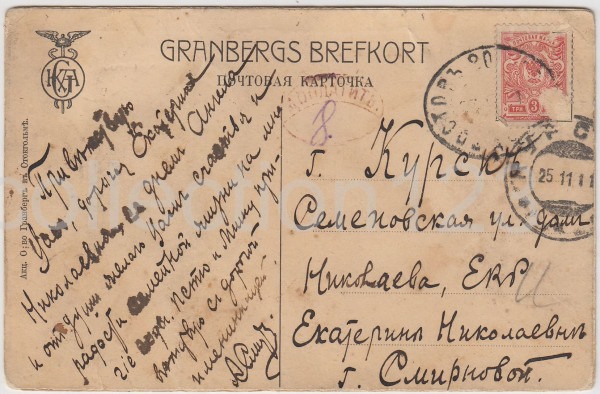 GRANBERGS BREFKORT
ПОЧТОВАЯ КАРТОЧКА
Акц. О-во Гранбергъ въ Стокгольмѣ.
Привѣтствую
Васъ, дорогая Екатерина
Николаевна, со днемъ Ангела
и отъ души желаю Вамъ счастья и
радости семейной жизни на многіе
годы. Петю и Мишу
поздравляю съ дорогой
именинницей.
3
25 11 11
г. Курскъ
Семеновская ул. домъ
Николаева, ЕВР
Екатеринѣ Николаевнѣ
г. Смирновой.
collection12